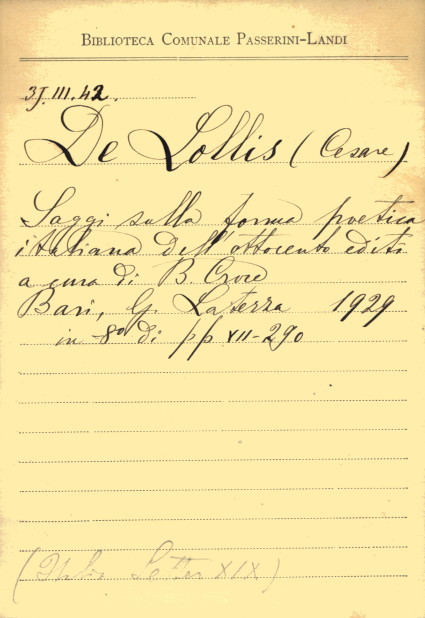 BIBLIOTECA COMUNALE PASSERINI-LANDI
3J.III.42.
De Lollis (Cesare)
Saggi sulla forma poetica
italiana dell'ottocento editi
a cura di B. Croce
Bari, G. Laterza 1929
in 8º di pp XII-290
( Letter XIX)